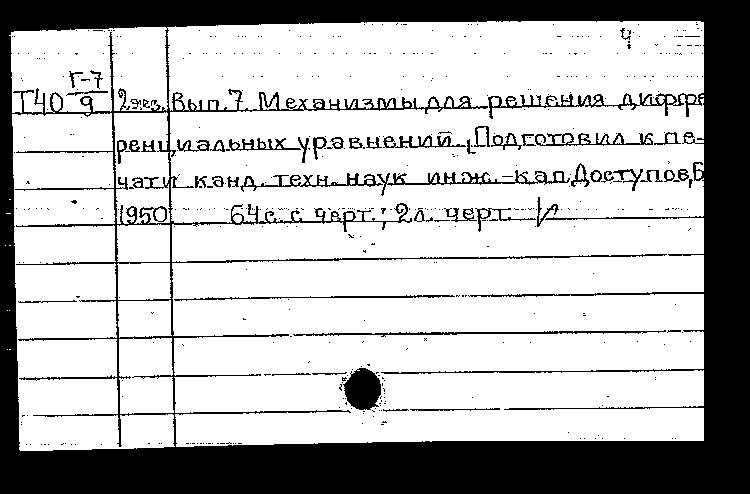 4
Г-7
Т40 9 2экз. Вып. 7 Механизмы для решения диффе
ренциальных уравнений. Подготовил к пе-
чати канд. техн. наук инж.-кап. Доступов, Б
1950 64 с. с черт.; 2 л. черт.